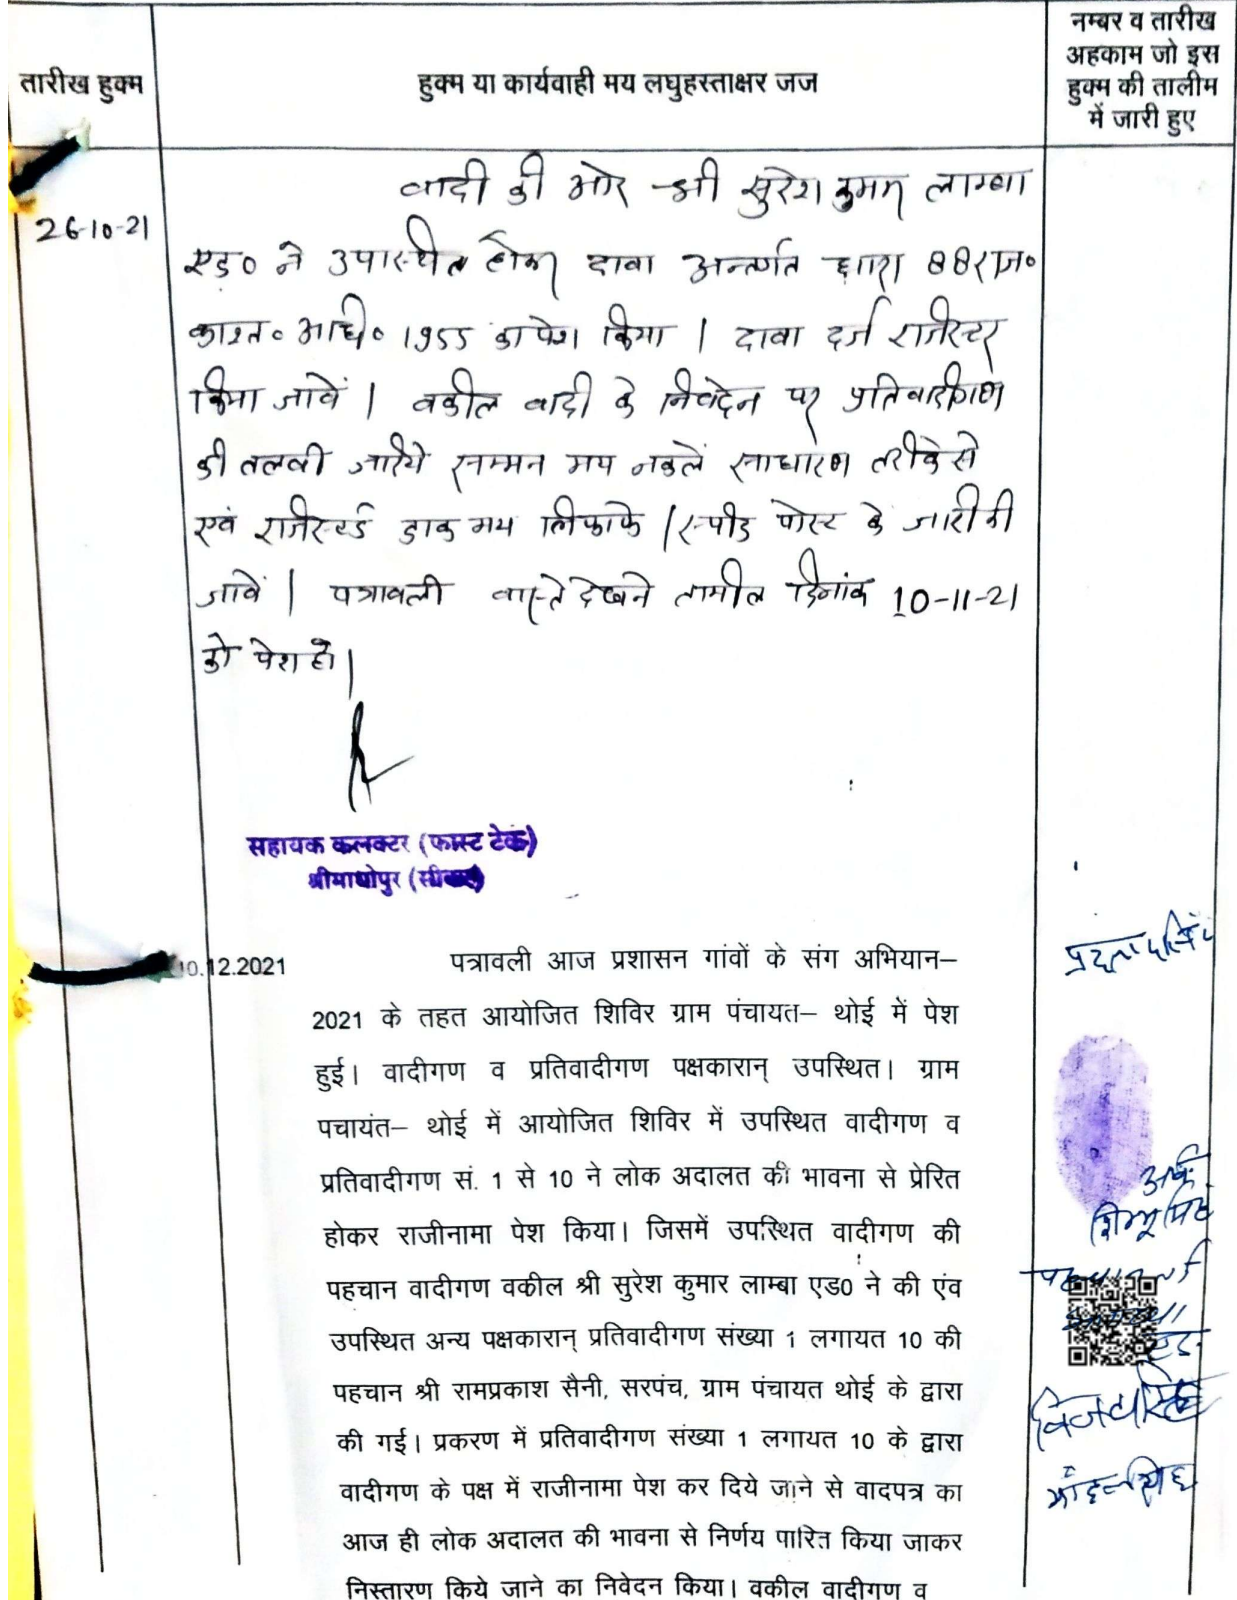 तारीख हुक्म
हुक्म या कार्यवाही मय लघुहस्ताक्षर जज
नम्बर व तारीख
अहकाम जो इस
हुक्म की तालीम
में जारी हुए
26-10-21
वादी की ओर श्री सुरेश कुमार लाम्बा
एड० ने उपस्थित होकर दावा अन्तर्गत धारा 88 राज०
काश्त० अधि० 1955 का पेश किया । दावा दर्ज रजिस्टर
किया जावें । वकील वादी के निवेदन पर प्रतिवादीगण
की तलबी जरिये सम्मन मय नकलें साधारण तरीके से
एवं रजिस्टर्ड डाक मय लिफाफे / स्पीड पोस्ट के जारी की
जावें । पत्रावली वास्ते देखने तामील दिनांक 10-11-21
को पेश हो ।
सहायक कलक्टर (फास्ट टेक)
श्रीमाधोपुर (सीकर)
10.12.2021
पत्रावली आज प्रशासन गांवों के संग अभियान–
2021 के तहत आयोजित शिविर ग्राम पंचायत– थोई में पेश
हुई। वादीगण व प्रतिवादीगण पक्षकारान् उपस्थित। ग्राम
पचायंत– थोई में आयोजित शिविर में उपस्थित वादीगण व
प्रतिवादीगण सं. 1 से 10 ने लोक अदालत की भावना से प्रेरित
होकर राजीनामा पेश किया। जिसमें उपस्थित वादीगण की
पहचान वादीगण वकील श्री सुरेश कुमार लाम्बा एड0 ने की एंव
उपस्थित अन्य पक्षकारान् प्रतिवादीगण संख्या 1 लगायत 10 की
पहचान श्री रामप्रकाश सैनी, सरपंच, ग्राम पंचायत थोई के द्वारा
की गई। प्रकरण में प्रतिवादीगण संख्या 1 लगायत 10 के द्वारा
वादीगण के पक्ष में राजीनामा पेश कर दिये जाने से वादपत्र का
आज ही लोक अदालत की भावना से निर्णय पारित किया जाकर
निस्तारण किये जाने का निवेदन किया। वकील वादीगण व
शिम्भू सिंह
विजय सिंह